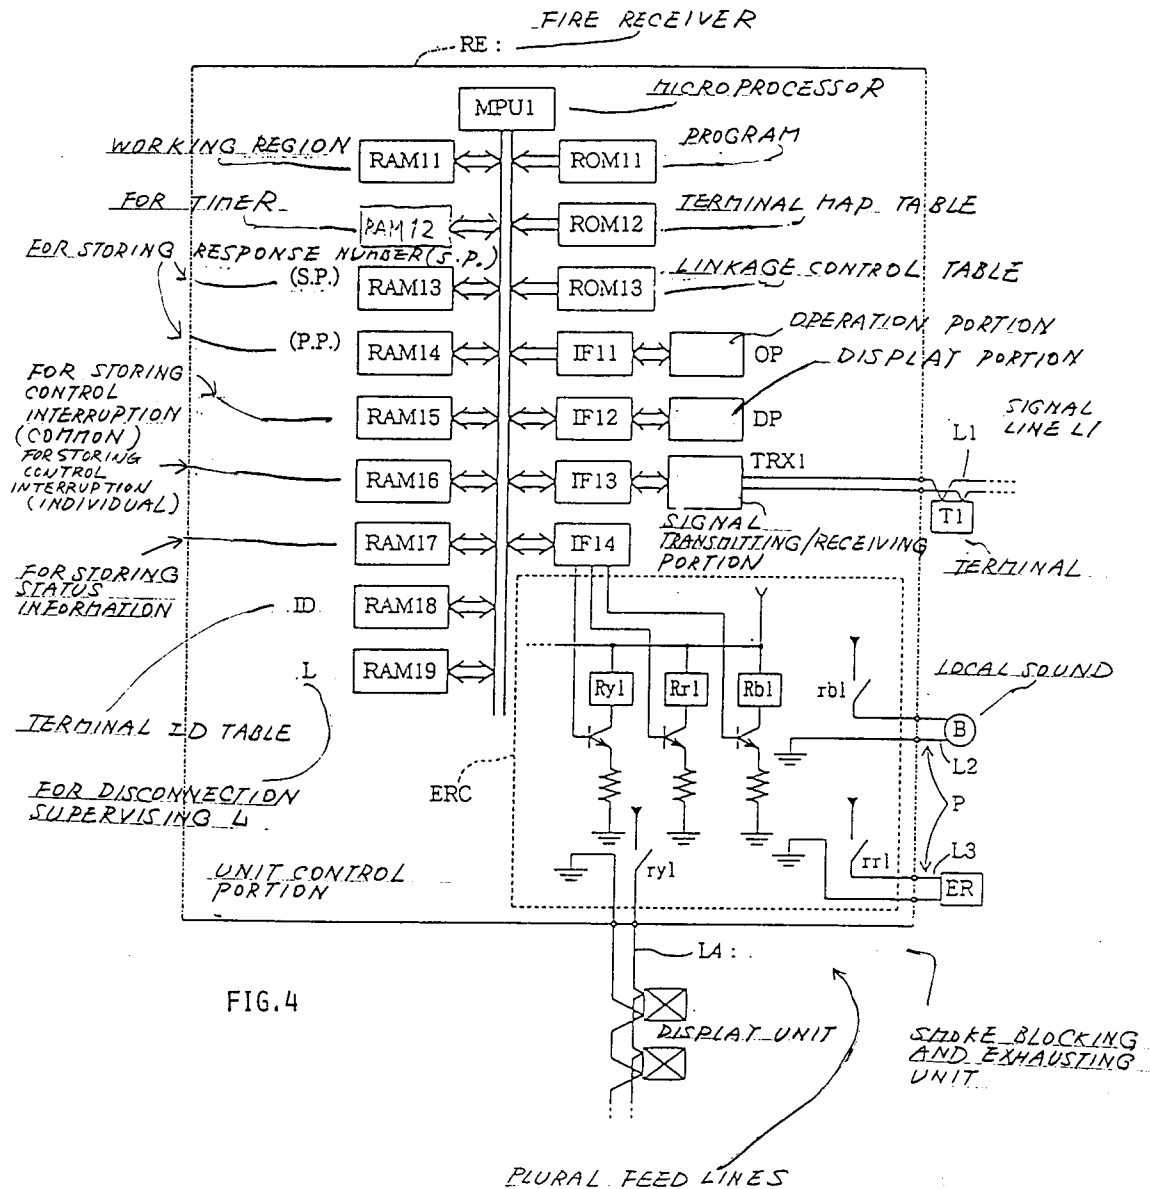 FIRE RECEIVER
RE :
MICROPROCESSOR
MPU1
WORKING REGION
RAM11
ROM11
PROGRAM
FOR TIMER
RAM12
ROM12
TERMINAL MAP TABLE
FOR STORING RESPONSE NUMBER (S.P.)
(S.P.)
RAM13
ROM13
LINKAGE CONTROL TABLE
(P.P.)
RAM14
IF11
OP
OPERATION PORTION
FOR STORING
CONTROL
INTERRUPTION
(COMMON)
RAM15
IF12
DP
DISPLAY PORTION
FOR STORING
CONTROL
INTERRUPTION
(INDIVIDUAL)
RAM16
IF13
TRX1
L1
SIGNAL
LINE L1
T1
TERMINAL
SIGNAL
TRANSMITTING/RECEIVING
PORTION
RAM17
IF14
FOR STORING
STATUS
INFORMATION
ID
RAM18
L
RAM19
TERMINAL ID TABLE
FOR DISCONNECTION
SUPERVISING L
Ry1
Rr1
Rb1
rb1
LOCAL SOUND
B
L2
P
ERC
ry1
rr1
L3
ER
UNIT CONTROL
PORTION
LA :
DISPLAY UNIT
SMOKE BLOCKING
AND EXHAUSTING
UNIT
FIG.4
PLURAL FEED LINES